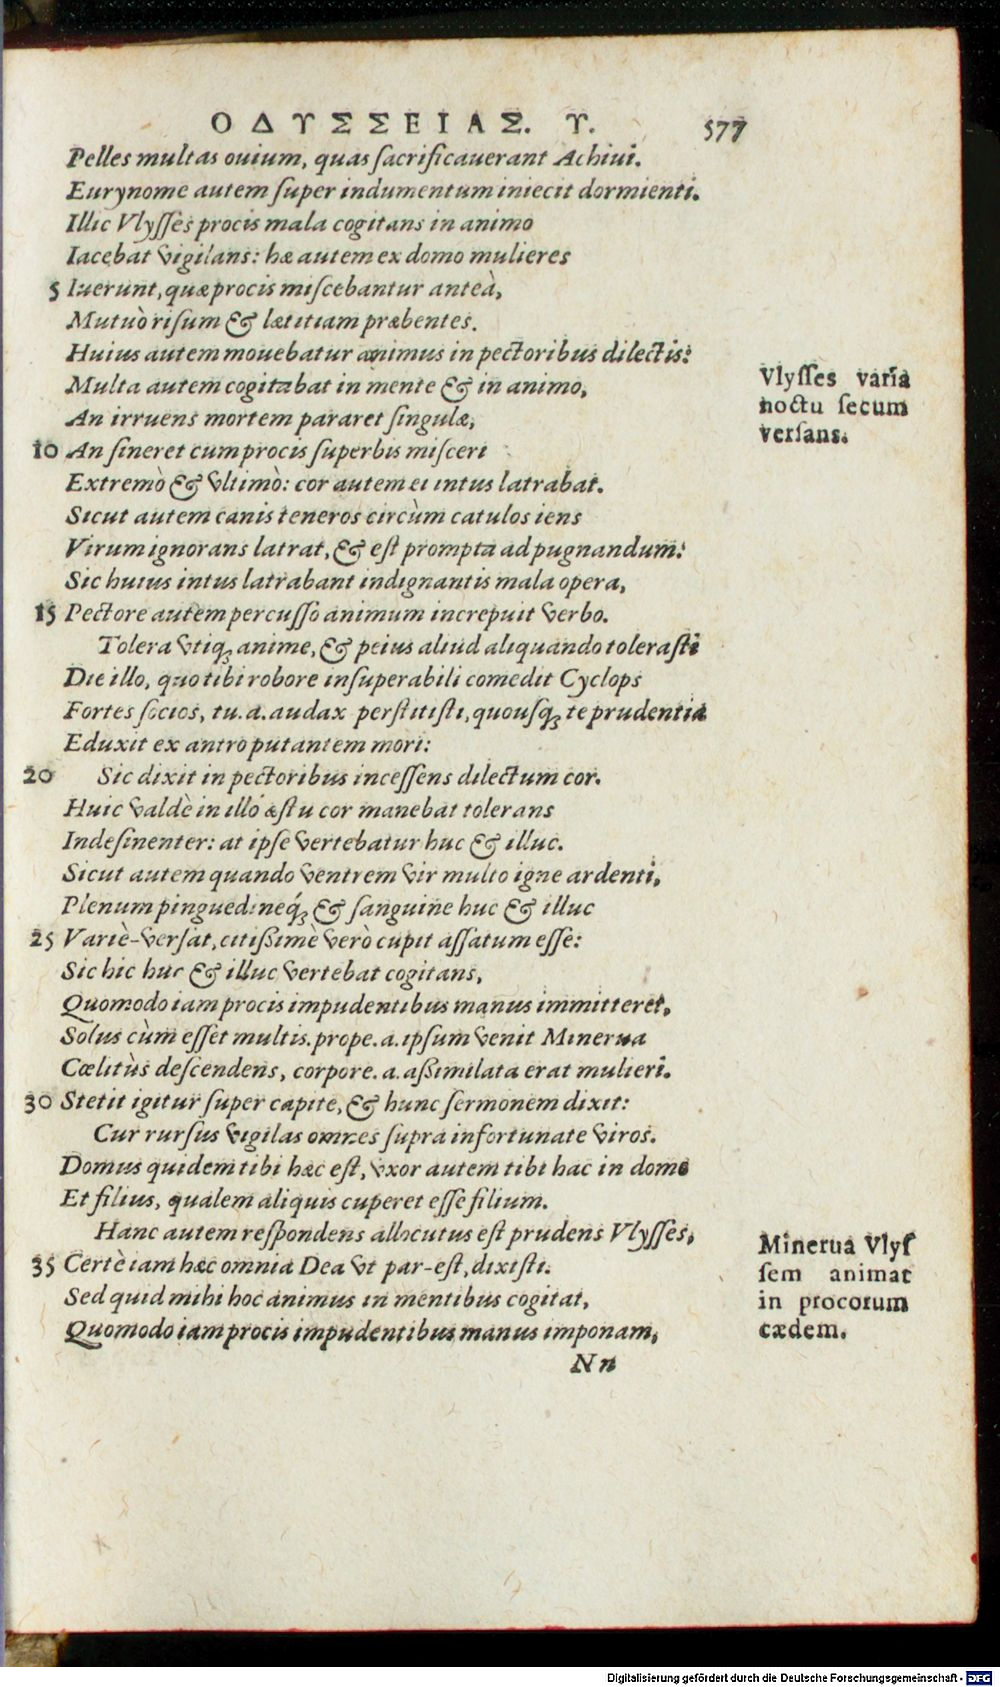 ΟΔΥΣΣΕΙΑΣ. Υ. 577
Pelles multas ouium, quas ſacrificauerant Achiui.
Eurynome autem ſuper indumentum iniecit dormienti.
Illic Vlyſſes procis mala cogitans in animo
Iacebat vigilans: hæ autem ex domo mulieres
5 Iuerunt, quæ procis miſcebantur anteà,
Mutuò riſum & lætitiam præbentes.
Huius autem mouebatur animus in pectoribus dilectis:
Multa autem cogitabat in mente & in animo,
An irruens mortem pararet ſingulæ,
10 An ſineret cum procis ſuperbis miſceri
Extremò & vltimò: cor autem ei intus latrabat.
Sicut autem canis teneros circùm catulos iens
Virum ignorans latrat, & eſt prompta ad pugnandum:
Sic huius intus latrabant indignantis mala opera,
15 Pectore autem percuſſo animum increpuit verbo.
Tolera vtiq; anime, & peius aliud aliquando toleraſti
Die illo, quo tibi robore inſuperabili comedit Cyclops
Fortes ſocios, tu .a. audax perſtitiſti, quouſq; te prudentia
Eduxit ex antro putantem mori:
20 Sic dixit in pectoribus inceſſens dilectum cor.
Huic valdè in illo æſtu cor manebat tolerans
Indeſinenter: at ipſe vertebatur huc & illuc.
Sicut autem quando ventrem vir multo igne ardenti,
Plenum pinguedineq́; & ſanguine huc & illuc
25 Variè-verſat, citißimè verò cupit aſſatum eſſe:
Sic hic huc & illuc vertebat cogitans,
Quomodo iam procis impudentibus manus immitteret,
Solus cùm eſſet multis. prope .a. ipſum venit Minerua
Cœlitùs deſcendens, corpore .a. aßimilata erat mulieri.
30 Stetit igitur ſuper capite, & hunc ſermonem dixit:
Cur rurſus vigilas omnes ſupra infortunate viros.
Domus quidem tibi hæc eſt, vxor autem tibi hac in domo
Et filius, qualem aliquis cuperet eſſe filium.
Hanc autem reſpondens allocutus eſt prudens Vlyſſes,
35 Certè iam hæc omnia Dea vt par-eſt, dixiſti.
Sed quid mihi hoc animus in mentibus cogitat,
Quomodo iam procis impudentibus manus imponam,
Nn
Vlyſſes varia
noctu ſecum
verſans.
Minerua Vlyſ
ſem animat
in procorum
cædem.
Digitalisierung gefördert durch die Deutsche Forschungsgemeinschaft - DFG